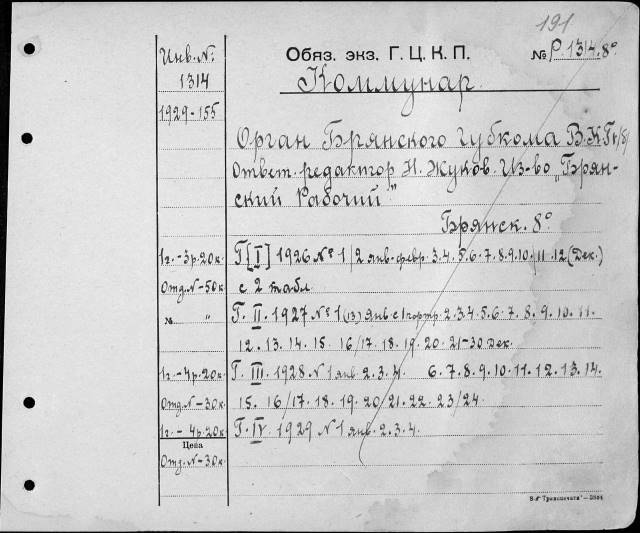 191
Инв. №
1314
Обяз. экз. Г. Ц. К. П.
№ Р. 1314. 8°
Коммунар.
1929-155
Орган Брянского Губкома В.К.П./б/
Ответ. редактор Н. Жуков. Из-во „Брян-
ский Рабочий"
Брянск. 8°
1г.-3р.20к. Г [I] 1926 № 1/2 янв-февр. 3. 4. 5. 6. 7. 8. 9. 10./11. 12 (Дек.)
Отд. N-50к с 2 табл.
№ " Г. II. 1927 № 1 (13) Янв. с 1 портр. 2. 3. 4. 5. 6. 7. 8. 9. 10. 11.
12. 13. 14. 15. 16/17. 18. 19. 20. 21-30 Дек.
1г.-4р.20к. Г. III. 1928. N 1 янв. 2. 3. 4. 6. 7. 8. 9. 10. 11. 12. 13. 14.
Отд. N-30к. 15. 16/17. 18. 19. 20. 21. 22. 23/24.
1г.-4р.20к Г. IV. 1929 N 1 янв. 2. 3. 4.
Цена
Отд. N-30к.